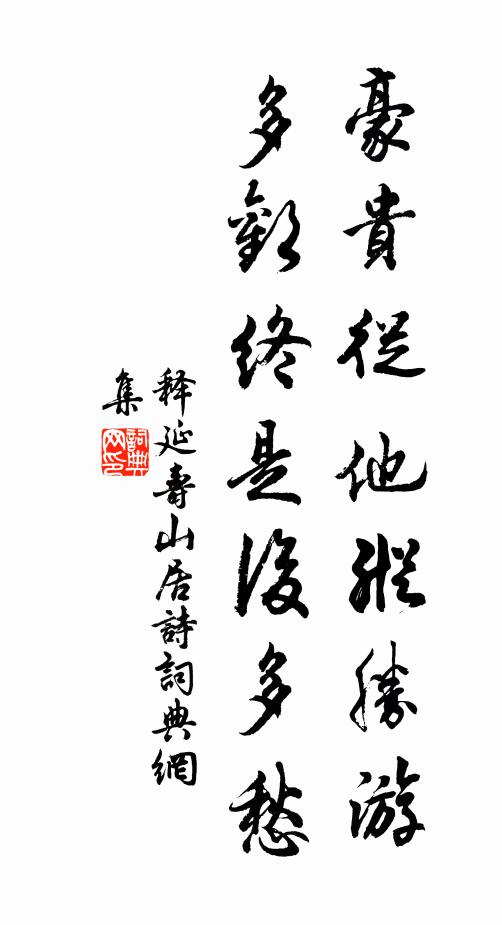 豪貴從他縱勝游
多歡終是復多愁
释延壽山居詩詞典網
集
詞典网印